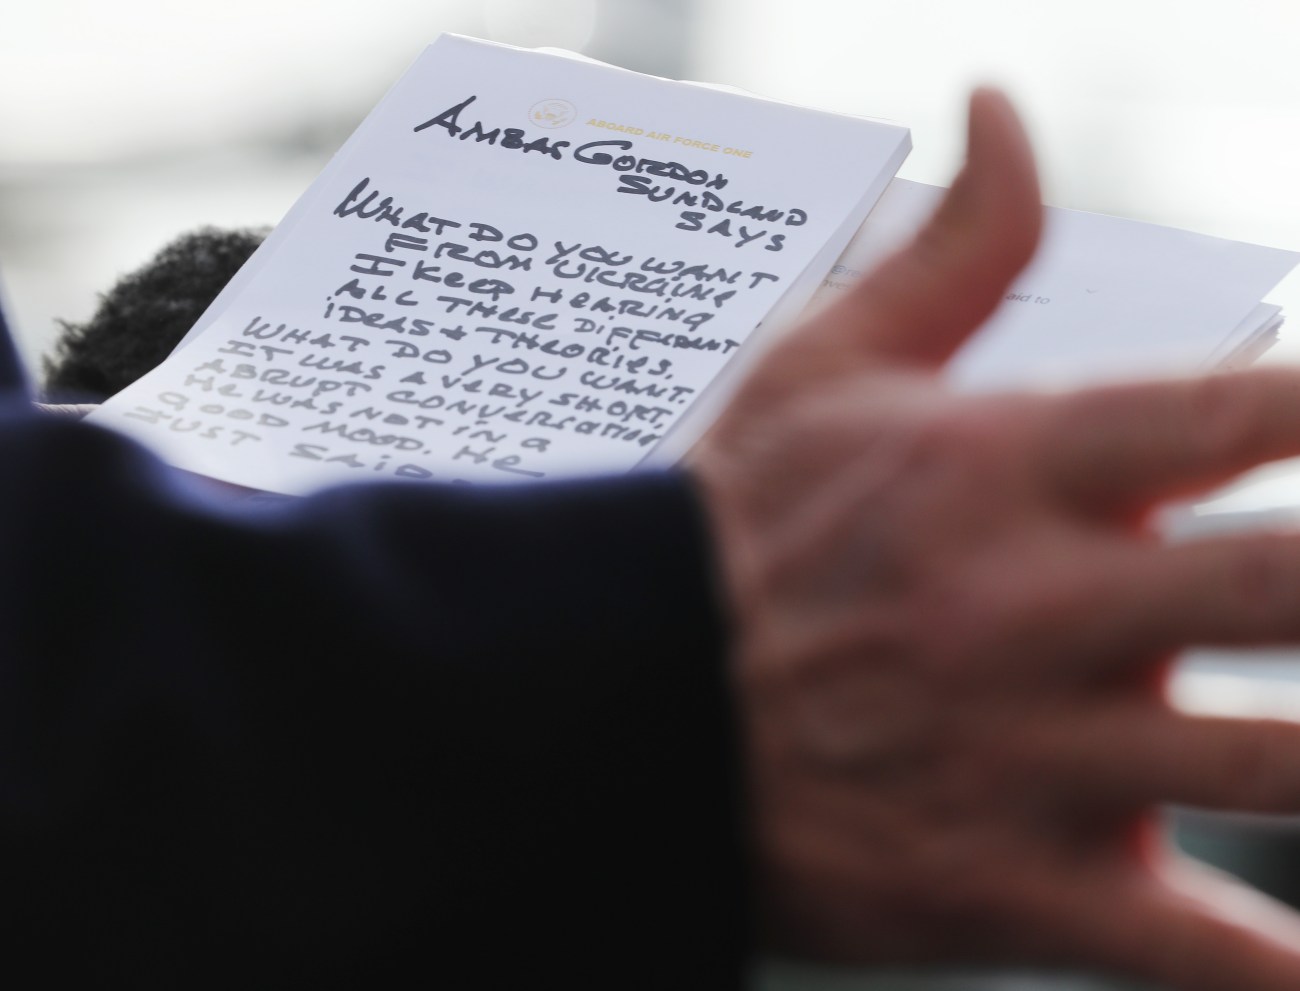 ABOARD AIR FORCE ONE
AMBAS GORDON
SUNDLAND
SAYS
WHAT DO YOU WANT
FROM UKRAINE
I KEEP HEARING
ALL THESE DIFFERANT
IDEAS + THEORIES.
WHAT DO YOU WANT.
IT WAS A VERY SHORT,
ABRUPT CONVERSATION
HE WAS NOT IN A
GOOD MOOD. HE
JUST SAID
aid to